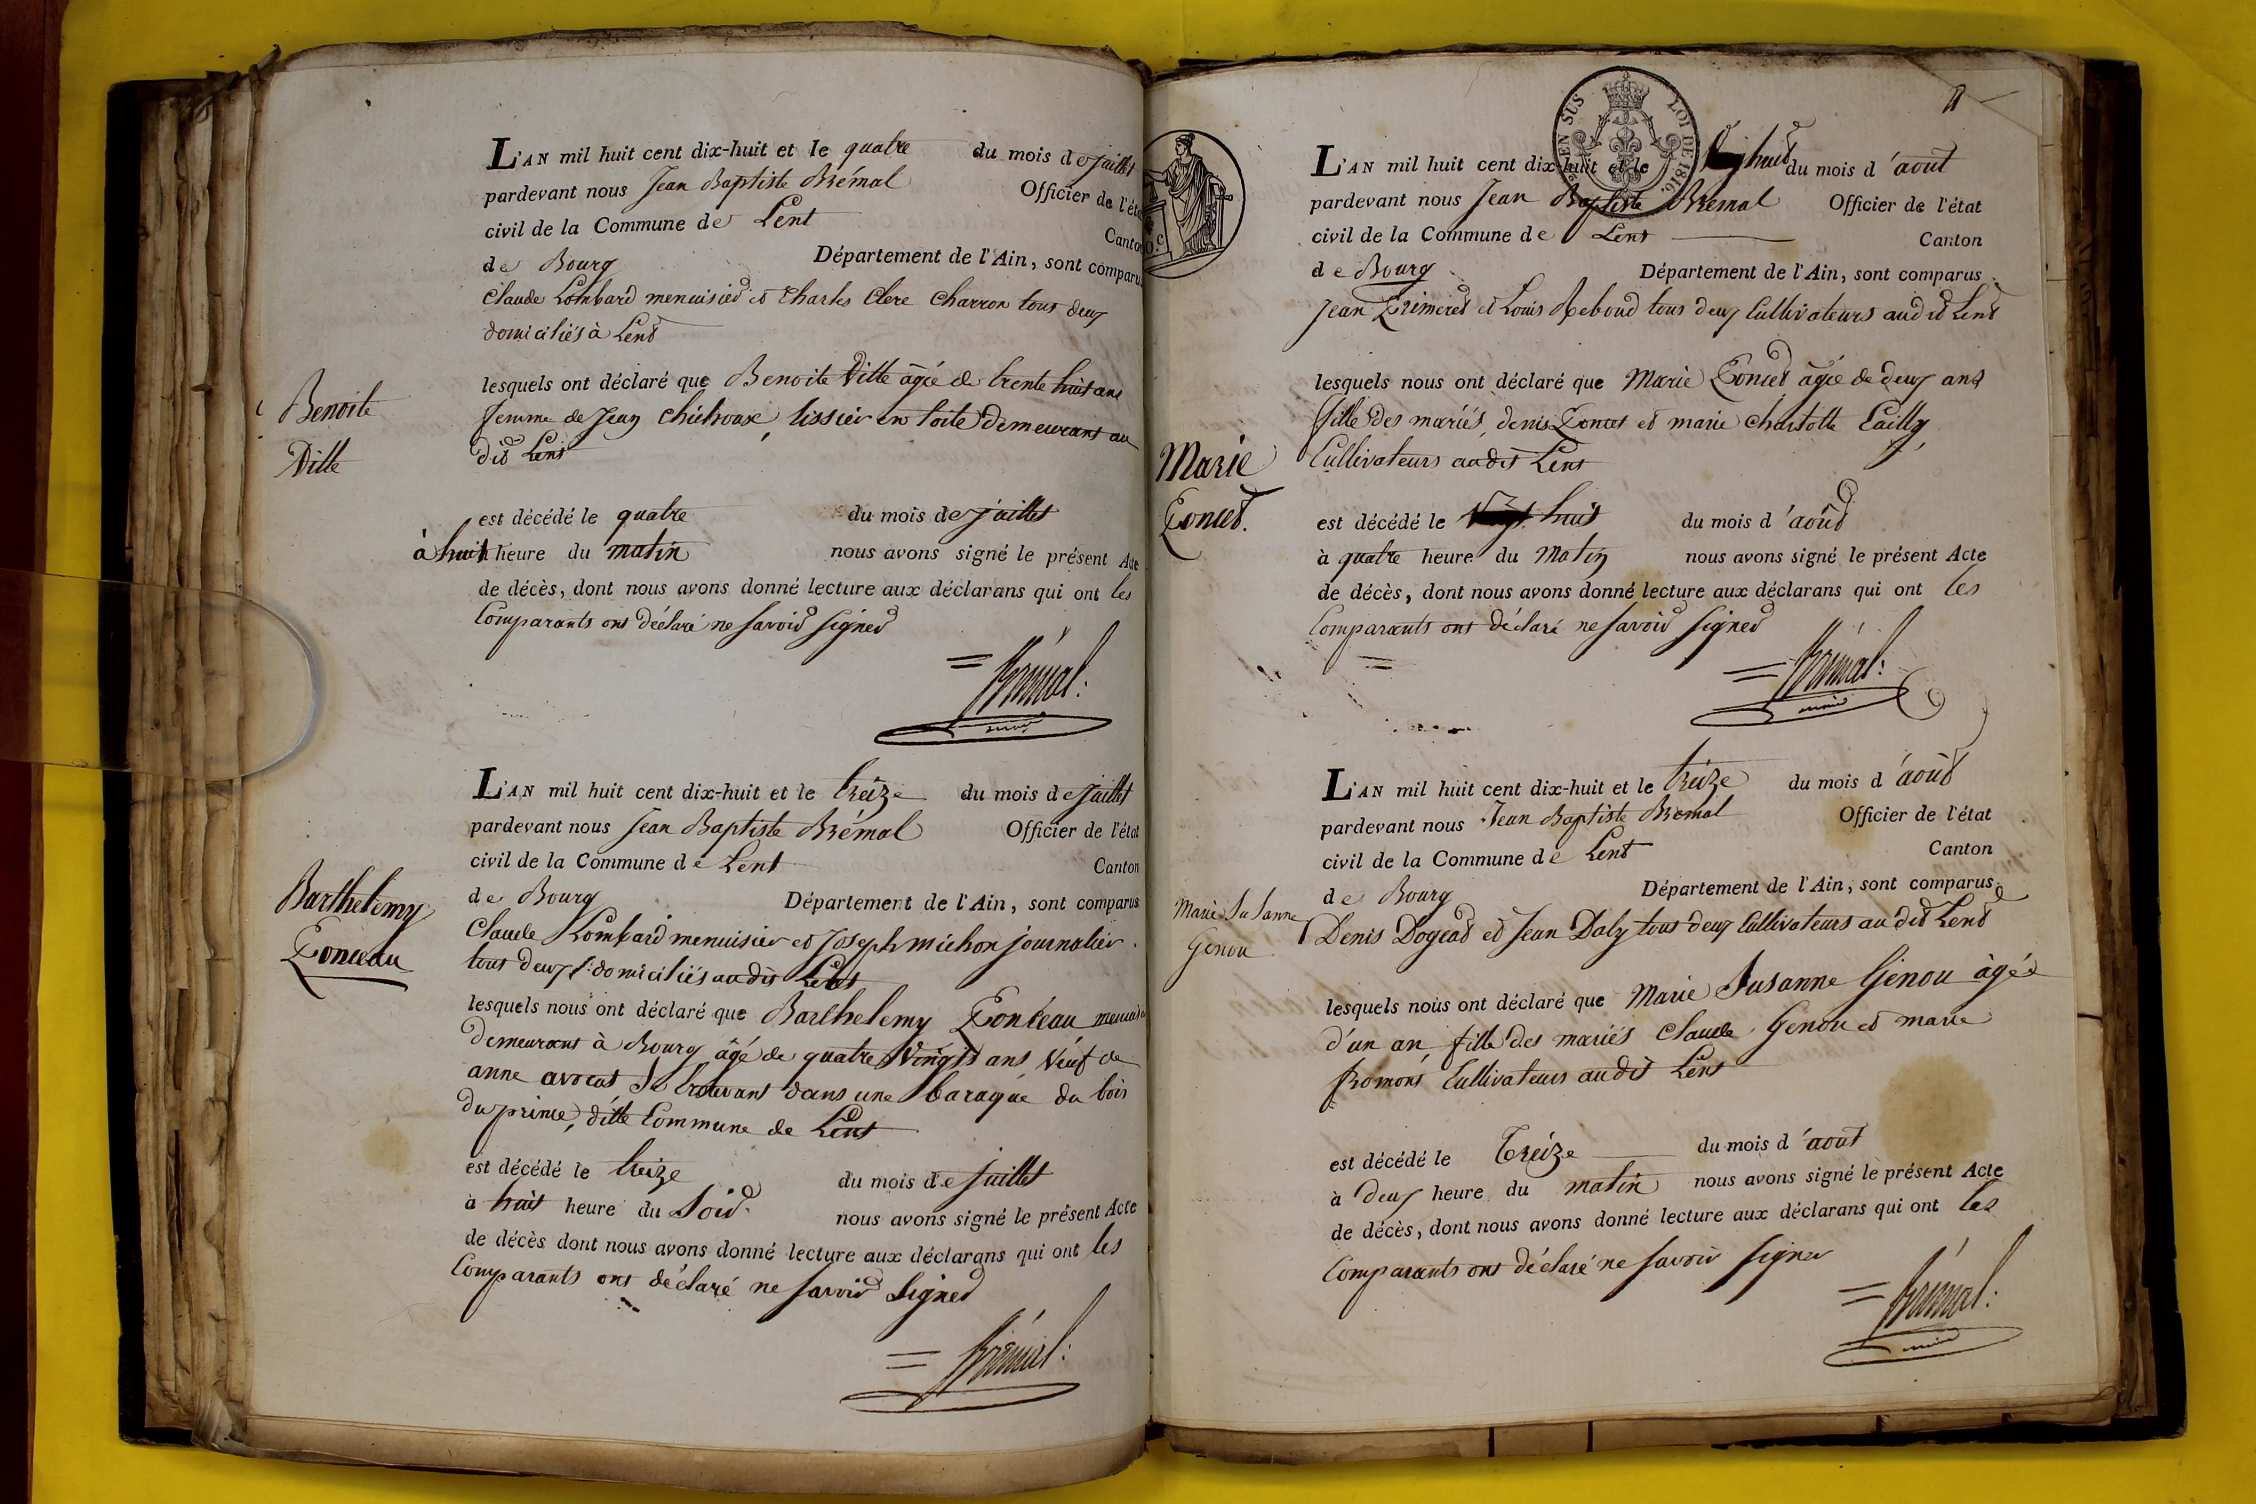 L'AN mil huit cent dix-huit et le quatre du mois de juillet
pardevant nous Jean Baptiste Brémal Officier de l'éta
civil de la Commune de Lent Canton
de Bourg Département de l'Ain, sont comparus
Claude Lombard menuisier et Charles Clere charron tous deux
domiciliés à Lent
lesquels ont déclaré que Benoite Ville âgée de trente huit ans
Benoite
Ville
femme de Jean tissier en toile demeurant au
dit Lent
est décédé le quatre du mois de juillet
à huit heure du matin nous avons signé le présent Acte
de décès, dont nous avons donné lecture aux déclarans qui ont les
Comparants ont déclaré ne savoir signer
Brémal:
L'AN mil huit cent dix-huit et le treize du mois de juillet
pardevant nous Jean Baptiste Brémal Officier de l'état
civil de la Commune de Lent Canton
de Bourg Département de l'Ain, sont comparus
Barthelemy
Ponceau
Claude Lombard menuisier et Joseph michon journalier
tous deux domiciliés audit Lent
lesquels nous ont déclaré que Barthelemy Ponceau
demeurant à Bourg âgé de quatre Vingts ans Veuf de
anne avocat Se trouvant dans une baraque du bois
du prince, ditte Commune de Lent
est décédé le treize du mois de juillet
à huit heure du Soir nous avons signé le présent Acte
de décès dont nous avons donné lecture aux déclarans qui ont les
Comparants ont déclaré ne savoir Signer
Brémal:
EN SUS LOI DE 1816.
L'AN mil huit cent dix-huit et le huit du mois d'aout
pardevant nous Jean Baptiste Brémal Officier de l'état
civil de la Commune de Lent Canton
de Bourg Département de l'Ain, sont comparus
Jean et Louis Reboud tous deux Cultivateurs audit Lent
lesquels nous ont déclaré que Marie Poncet âgée de deux ans
fille des mariés denis Poncet et marie
Marie
Poncet.
Cultivateurs audit Lent
est décédé le huit du mois d'août
à quatre heure du Matin nous avons signé le présent Acte
de décès, dont nous avons donné lecture aux déclarans qui ont les
Comparants ont déclaré ne savoir signer
Brémal:
L'AN mil huit cent dix-huit et le treize du mois d'août
pardevant nous Jean Baptiste Bremal Officier de l'état
civil de la Commune de Lent Canton
de Bourg Département de l'Ain, sont comparus
Marie Susanne
Genou
Denis et Jean Daly tous deux Cultivateurs audit Lent
lesquels nous ont déclaré que Marie Susanne Genou âgée
d'un an fille des mariés Claude Genou et marie
Cultivateurs audit Lent
est décédé le Treize du mois d'aout
à deux heure du matin nous avons signé le présent Acte
de décès, dont nous avons donné lecture aux déclarans qui ont les
Comparants ont déclaré ne savoir signer
Brémal: